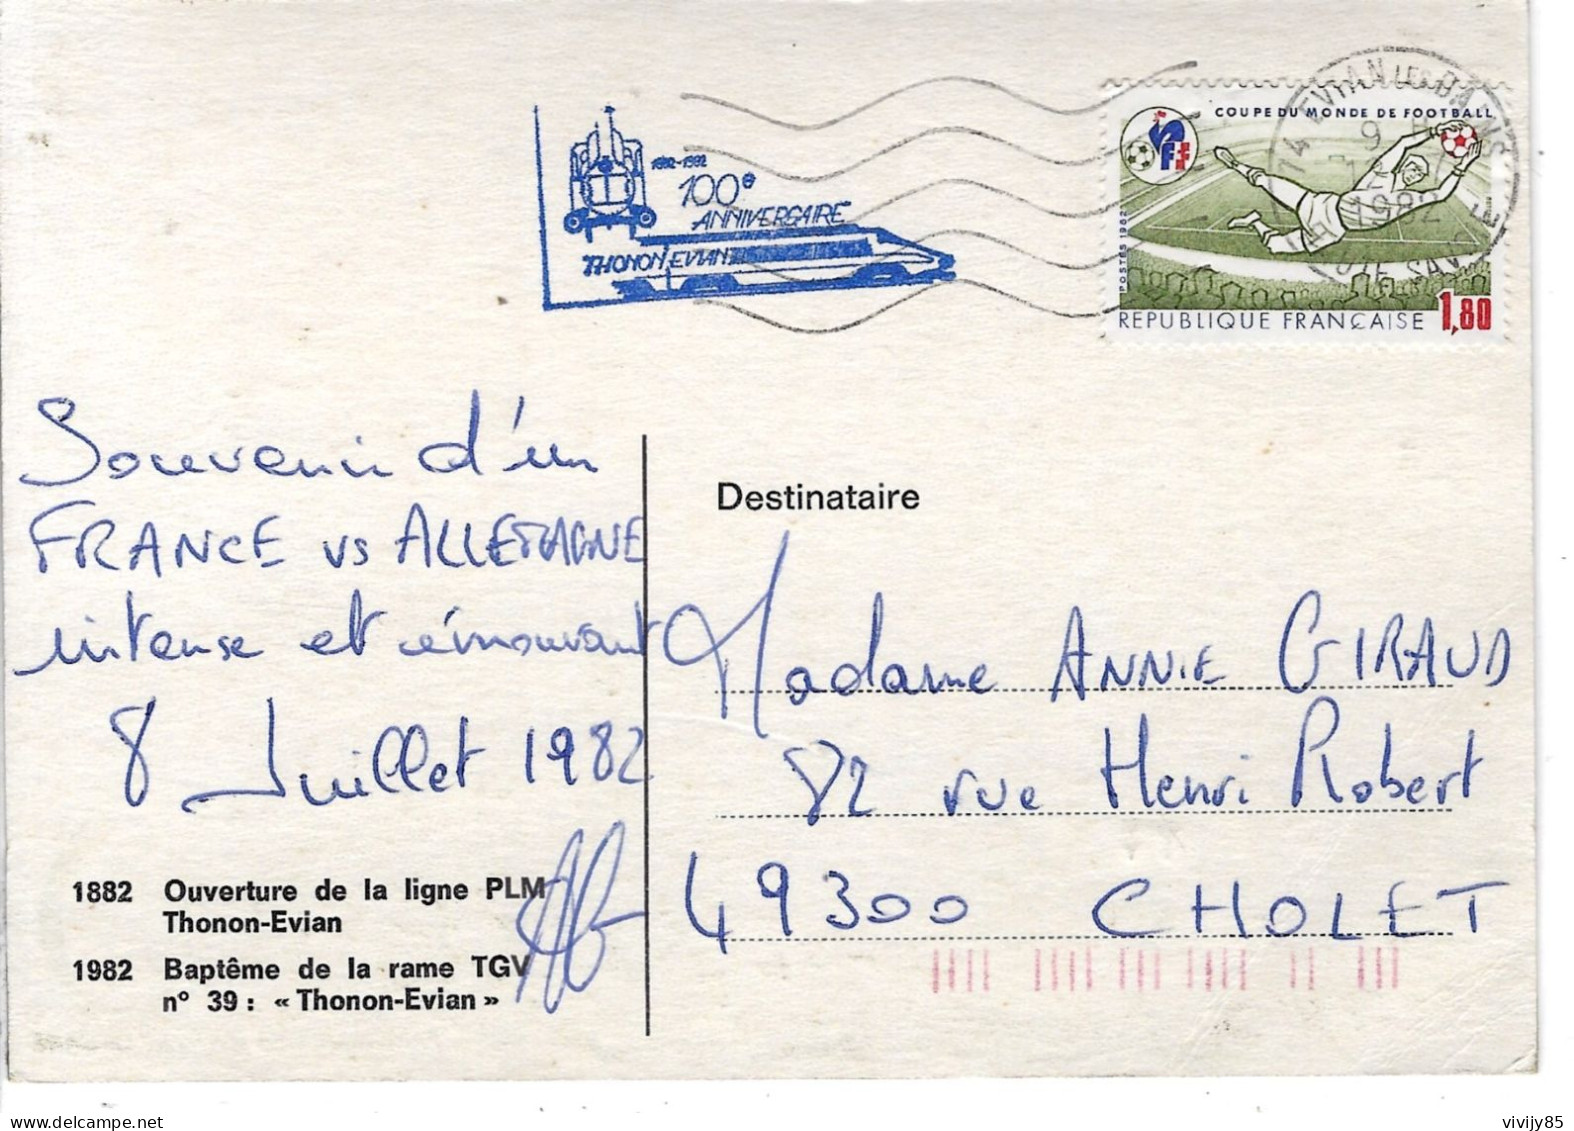 1882-1982
100e
ANNIVERSAIRE
THONON EVIAN
COUPE DU MONDE DE FOOTBALL
FFF
POSTES 1982
REPUBLIQUE FRANÇAISE 1,80
74 EVIAN LES BAINS
1982
Souvenir d'un
FRANCE vs ALLEMAGNE
intense et émouvant
8 Juillet 1982
1882 Ouverture de la ligne PLM
Thonon-Evian
1982 Baptême de la rame TGV
n° 39 : « Thonon-Evian »
Destinataire
Madame ANNIE GIRAUD
82 rue Henri Robert
49300 CHOLET
vivijy85